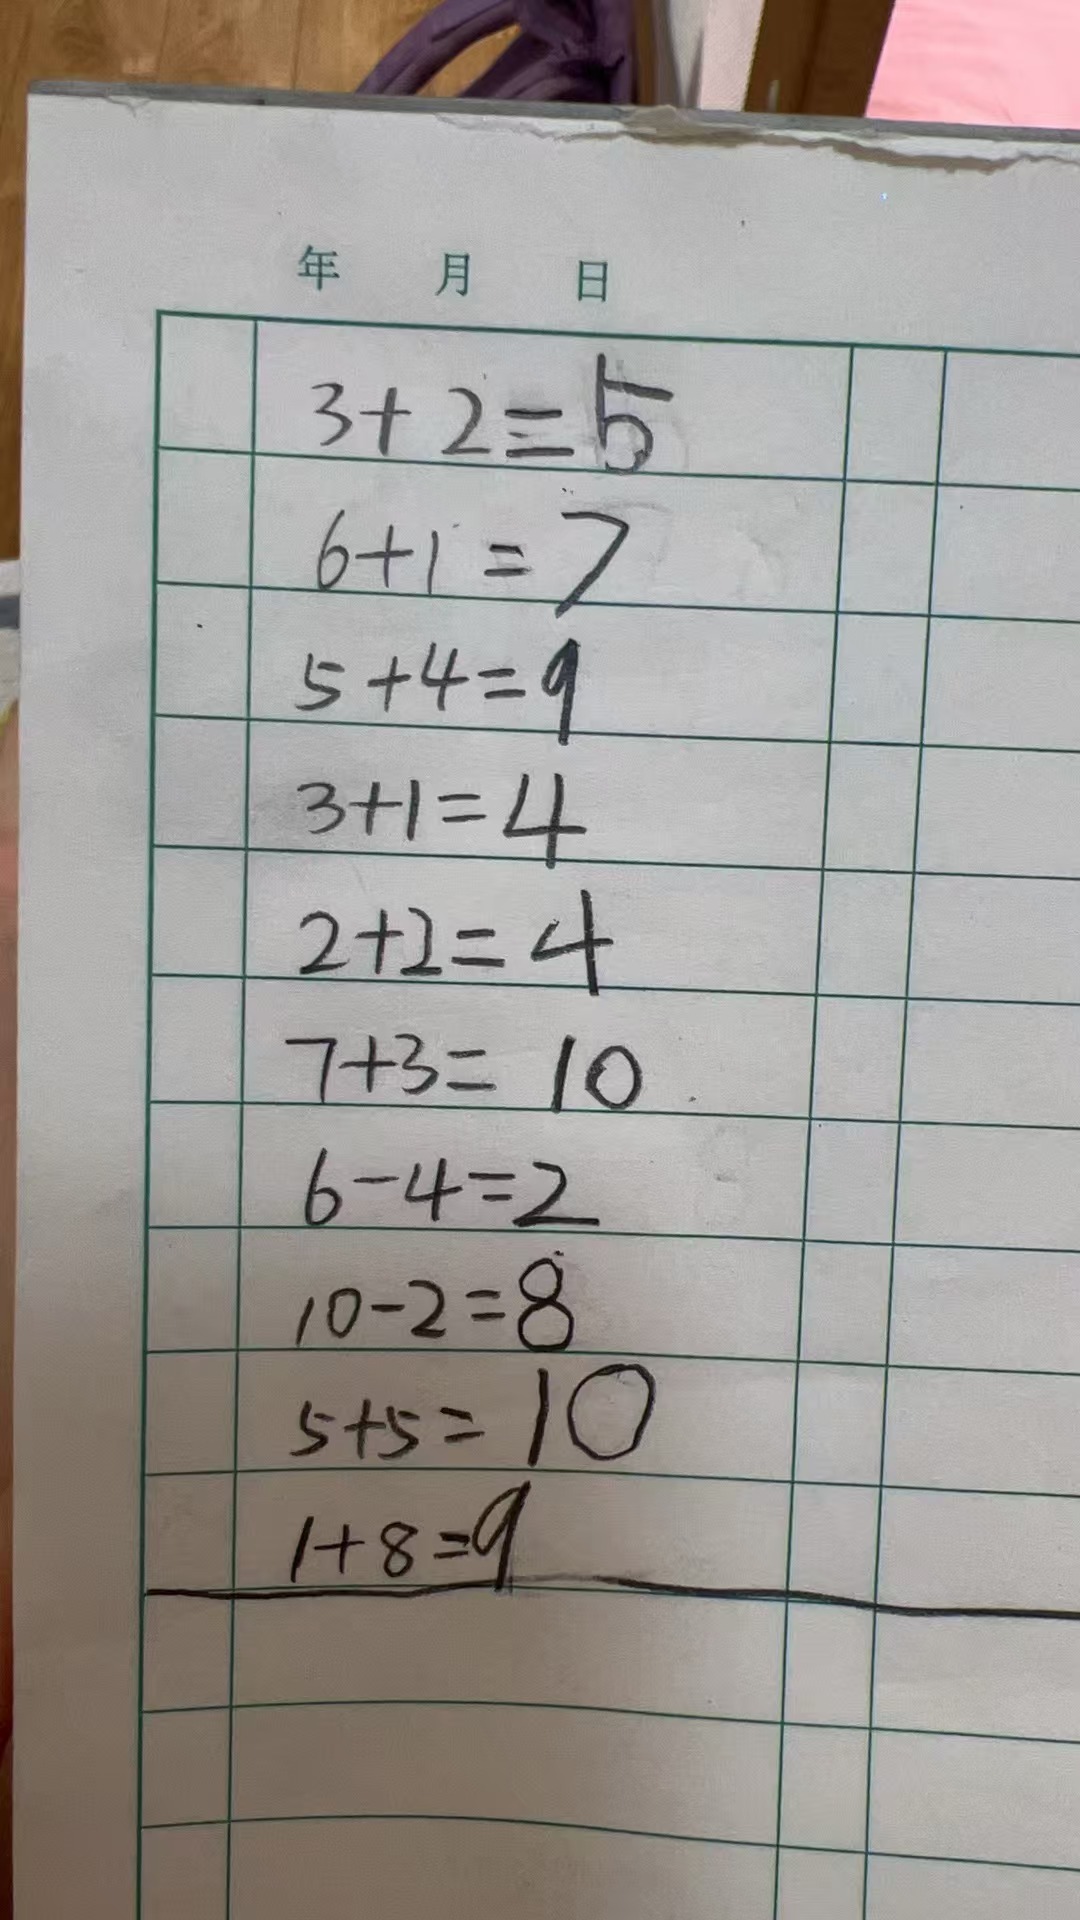 年 月 日
3+2=5
6+1=7
5+4=9
3+1=4
2+2=4
7+3=10
6-4=2
10-2=8
5+5=10
1+8=9